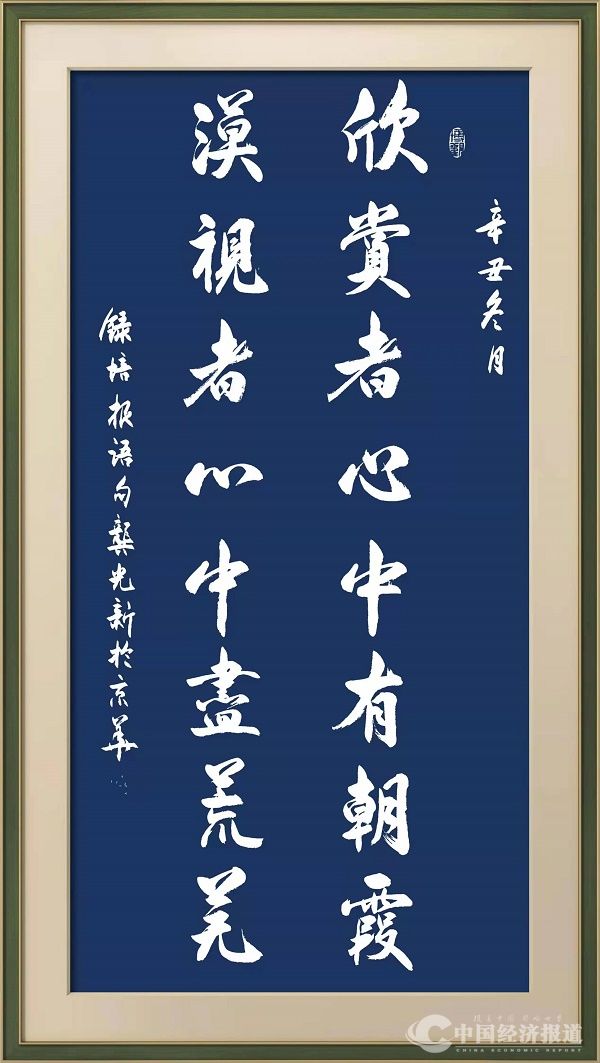 辛丑冬月
欣賞者心中有朝霞
漠視者心中盡荒芜
錄培根语句龔光新於京華
中国经济报道
CHINA ECONOMIC REPORT